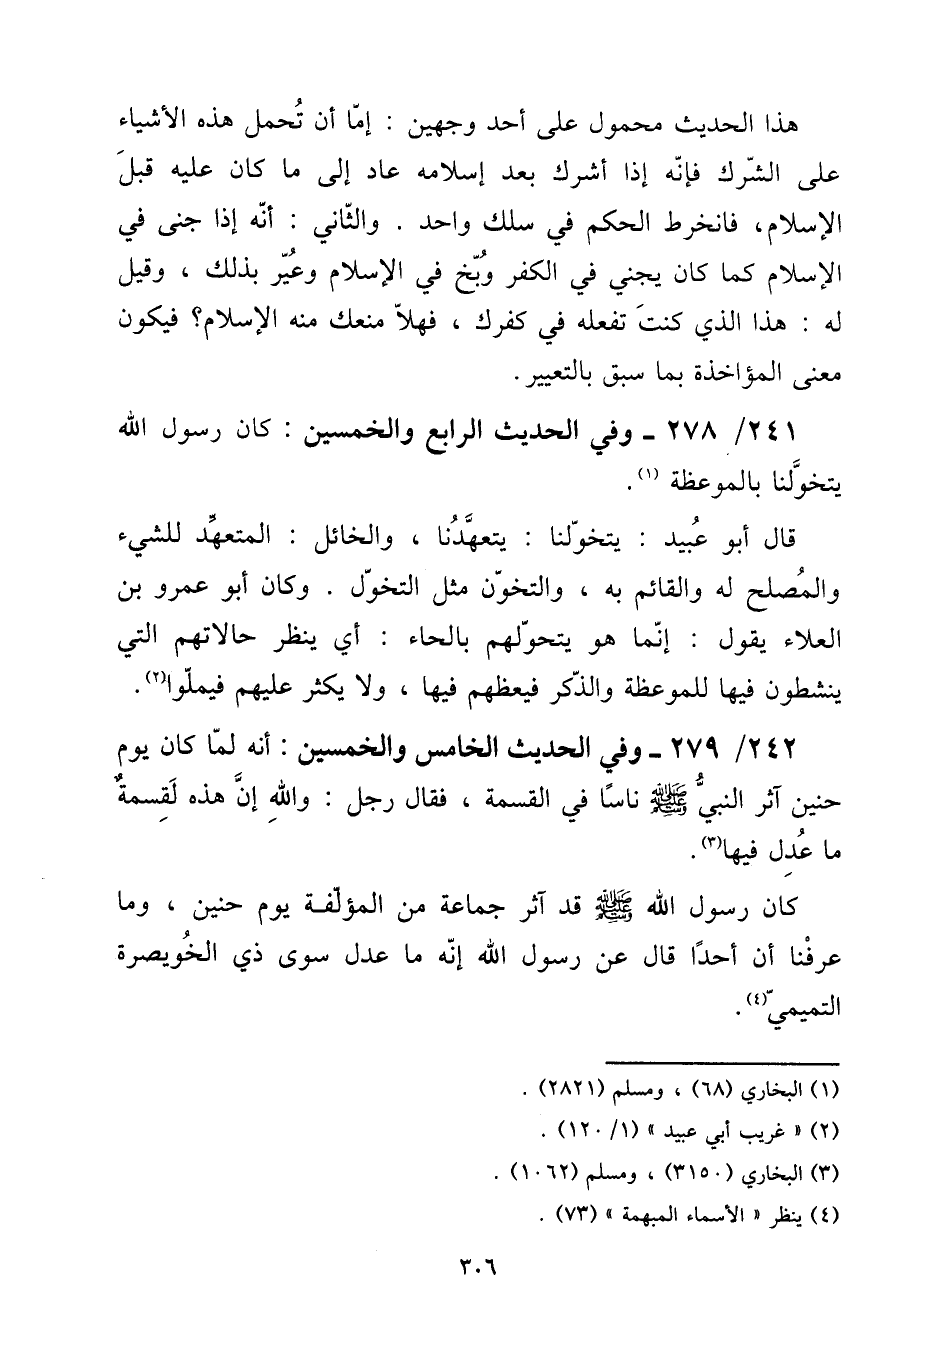 هذا الحديث محمول على أحد وجهين : إمّا أن تُحمل هذه الأشياء
على الشّرك فإنّه إذا أشرك بعد إسلامه عاد إلى ما كان عليه قبلَ
الإسلام، فانخرط الحكم في سلك واحد . والثّاني : أنّه إذا جنى في
الإسلام كما كان يجني في الكفر وُبّخ في الإسلام وعُيّر بذلك ، وقيل
له : هذا الذي كنتَ تفعله في كفرك ، فهلاّ منعك منه الإسلام؟ فيكون
معنى المؤاخذة بما سبق بالتعيير .
٢٤١/ ٢٧٨ ـ وفي الحديث الرابع والخمسين : كان رسول الله
يتخوَّلنا بالموعظة (١).
قال أبو عُبيد : يتخوّلنا : يتعهَّدُنا ، والخائل : المتعهِّد للشيء
والمُصلح له والقائم به ، والتخوّن مثل التخوّل . وكان أبو عمرو بن
العلاء يقول : إنّما هو يتحوّلهم بالحاء : أي ينظر حالاتهم التي
ينشطون فيها للموعظة والذّكر فيعظهم فيها ، ولا يكثر عليهم فيملّوا(٢).
٢٤٢/ ٢٧٩ ـ وفي الحديث الخامس والخمسين : أنه لمّا كان يوم
حنين آثر النبيُّ ﷺ ناسًا في القسمة ، فقال رجل : واللهِ إنَّ هذه لَقِسمةٌ
ما عُدِل فيها(٣).
كان رسول الله ﷺ قد آثر جماعة من المؤلّفة يوم حنين ، وما
عرفْنا أن أحدًا قال عن رسول الله إنّه ما عدل سوى ذي الخُويصرة
التميميّ(٤).
(١) البخاري (٦٨) ، ومسلم (٢٨٢١) .
(٢) « غريب أبي عبيد » (١/ ١٢٠) .
(٣) البخاري (٣١٥٠) ، ومسلم (١٠٦٢) .
(٤) ينظر « الأسماء المبهمة » (٧٣) .
٣٠٦